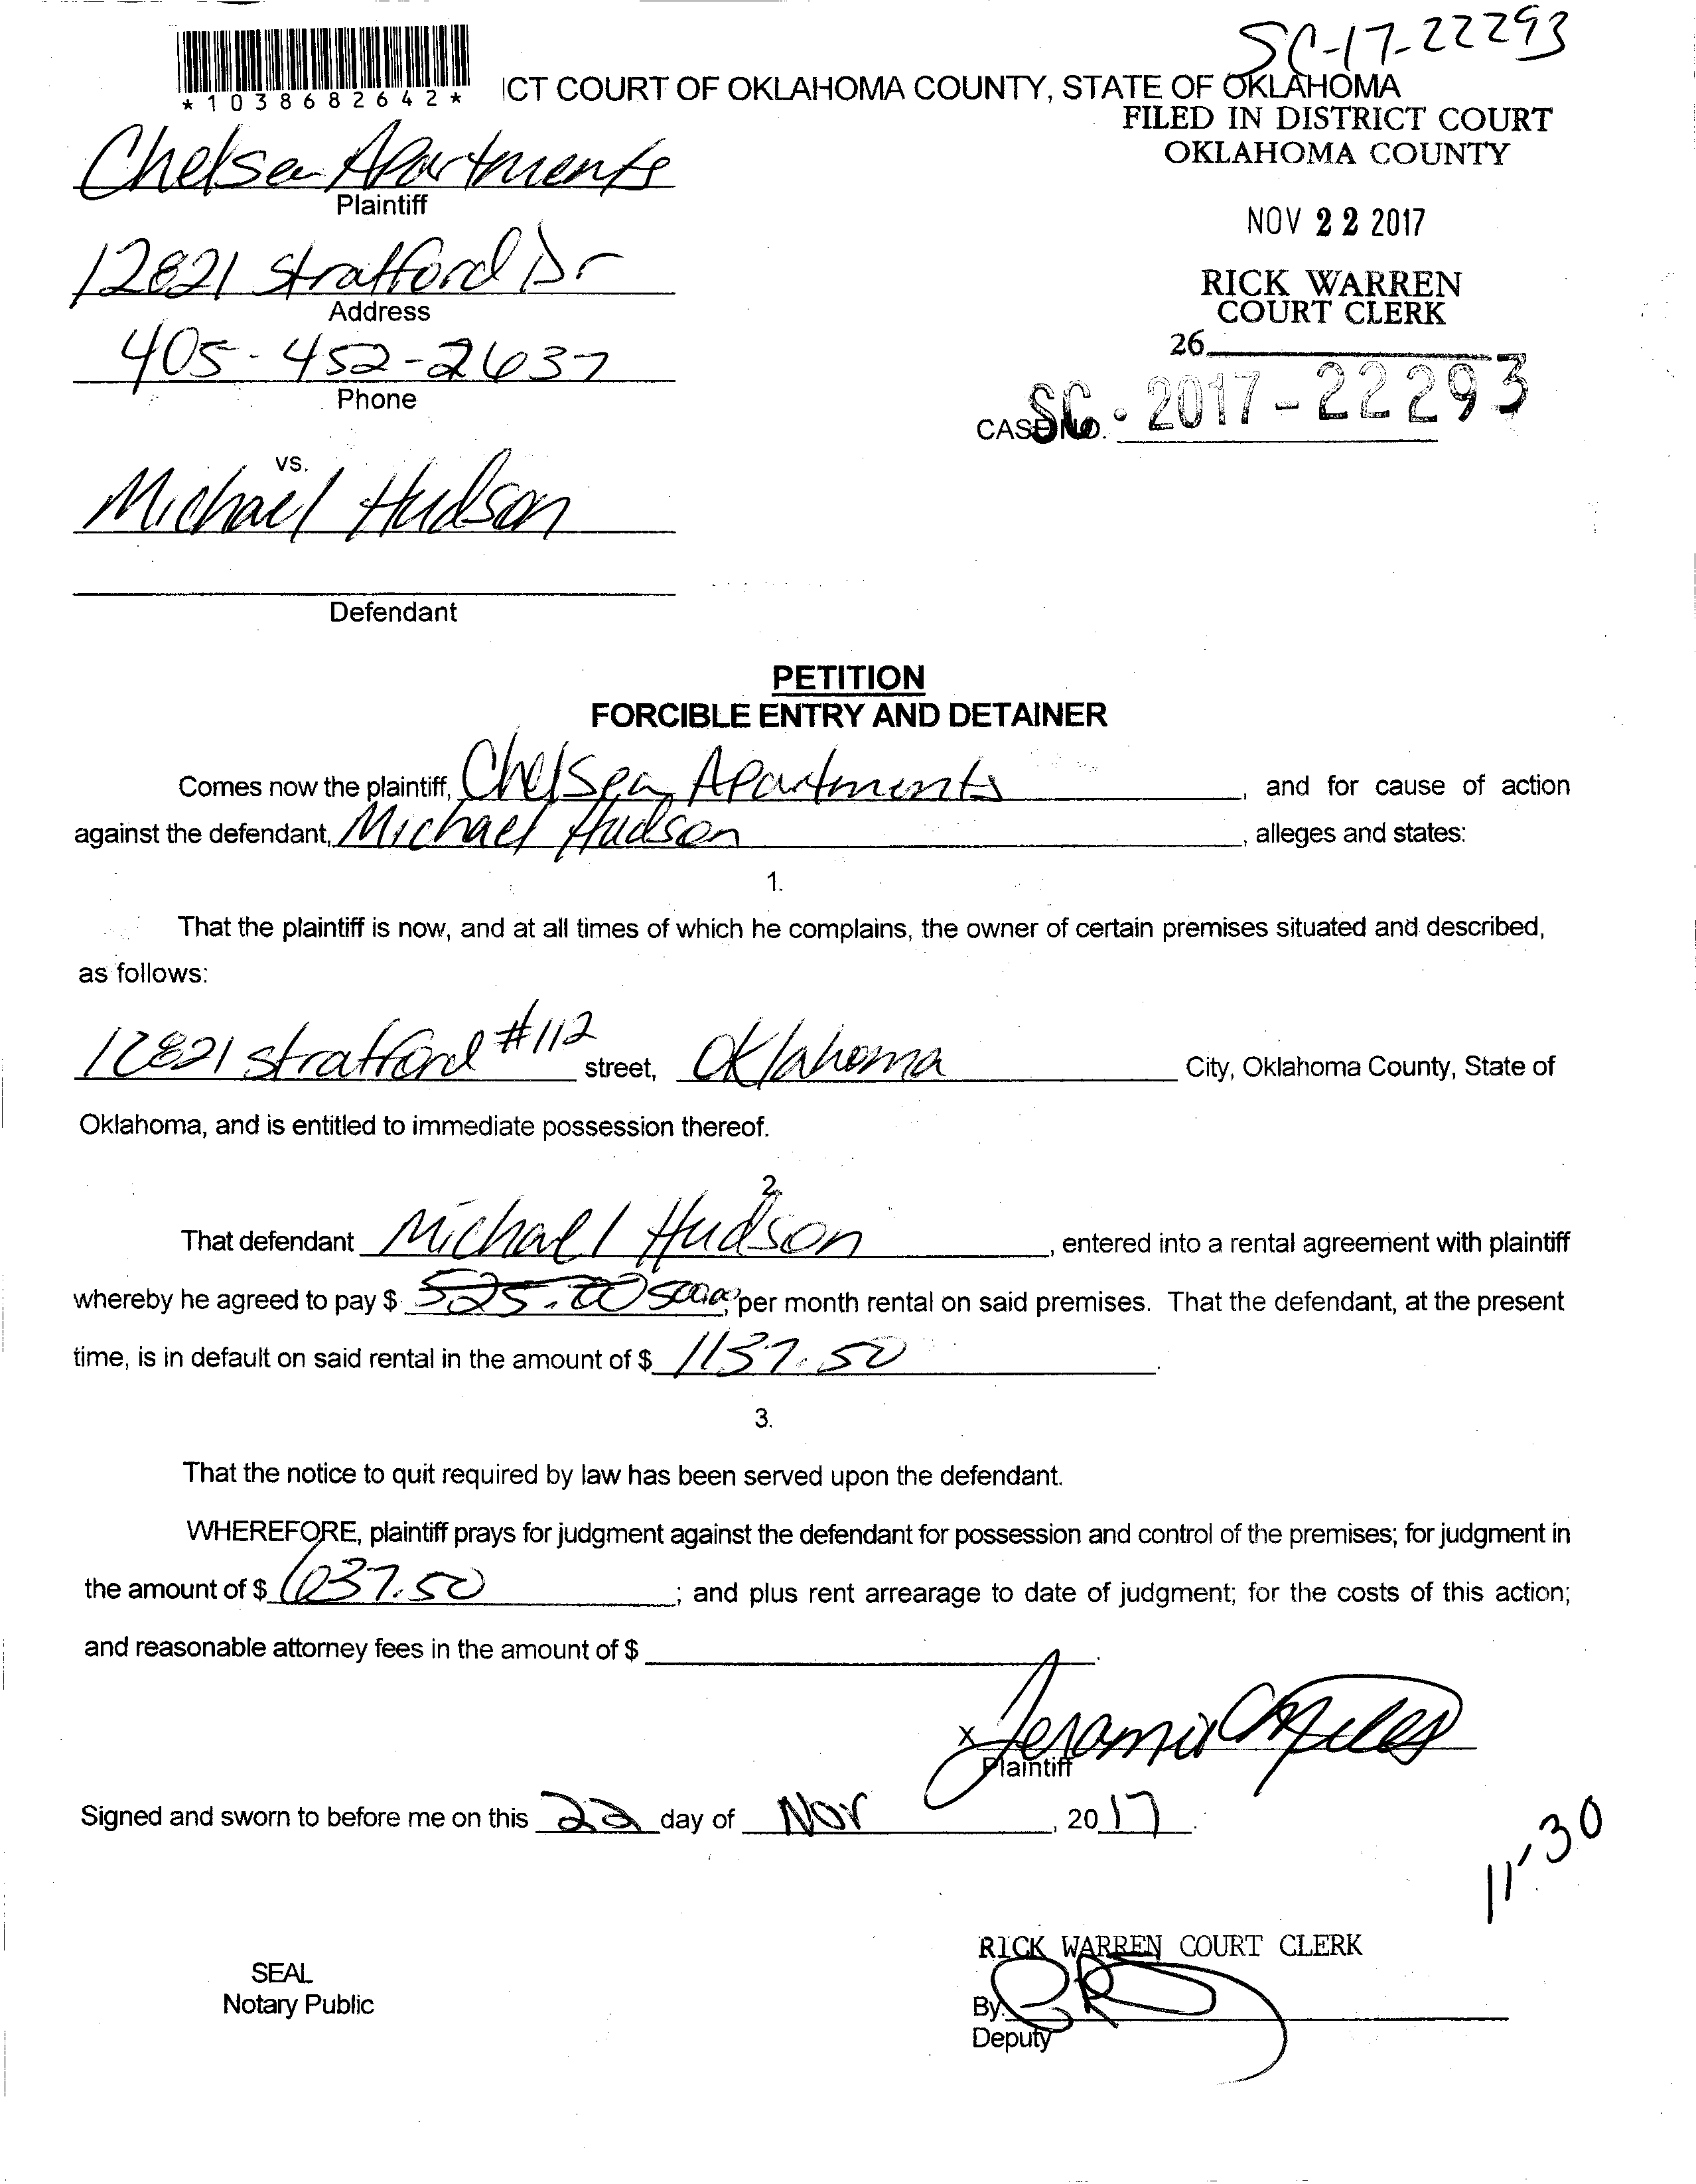 SC-17-22293
*1038682642*
ICT COURT OF OKLAHOMA COUNTY, STATE OF OKLAHOMA
FILED IN DISTRICT COURT
OKLAHOMA COUNTY
Chelsea Apartments
Plaintiff
NOV 22 2017
12821 Stratford Dr
Address
RICK WARREN
COURT CLERK
405-452-2637
Phone
26
CASE NO. SC-2017-22293
vs.
Michael Hudson
Defendant
PETITION
FORCIBLE ENTRY AND DETAINER
Comes now the plaintiff, Chelsea Apartments, and for cause of action
against the defendant, Michael Hudson, alleges and states:
1.
That the plaintiff is now, and at all times of which he complains, the owner of certain premises situated and described,
as follows:
12821 Stratford #112 street, Oklahoma City, Oklahoma County, State of
Oklahoma, and is entitled to immediate possession thereof.
2.
That defendant Michael Hudson, entered into a rental agreement with plaintiff
whereby he agreed to pay $ 525.00 500.00 per month rental on said premises. That the defendant, at the present
time, is in default on said rental in the amount of $ 1137.50.
3.
That the notice to quit required by law has been served upon the defendant.
WHEREFORE, plaintiff prays for judgment against the defendant for possession and control of the premises; for judgment in
the amount of $ 637.50; and plus rent arrearage to date of judgment; for the costs of this action;
and reasonable attorney fees in the amount of $ .
x
Plaintiff
Signed and sworn to before me on this 22 day of Nov, 2017.
11-30
RICK WARREN COURT CLERK
SEAL
Notary Public
By
Deputy